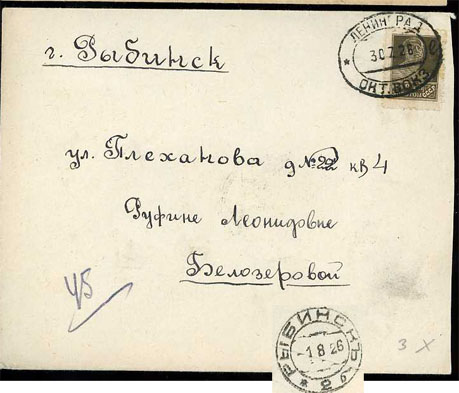 ЛЕНИНГРАД
30.7.26
ОКТ. ВОКЗ.
г. Рыбинск
ул. Плеханова д № 22 кв 4
Руфине Леонидовне
Белозеровой
45
РЫБИНСКЪ
-1 8 26
* 2 б
3 х